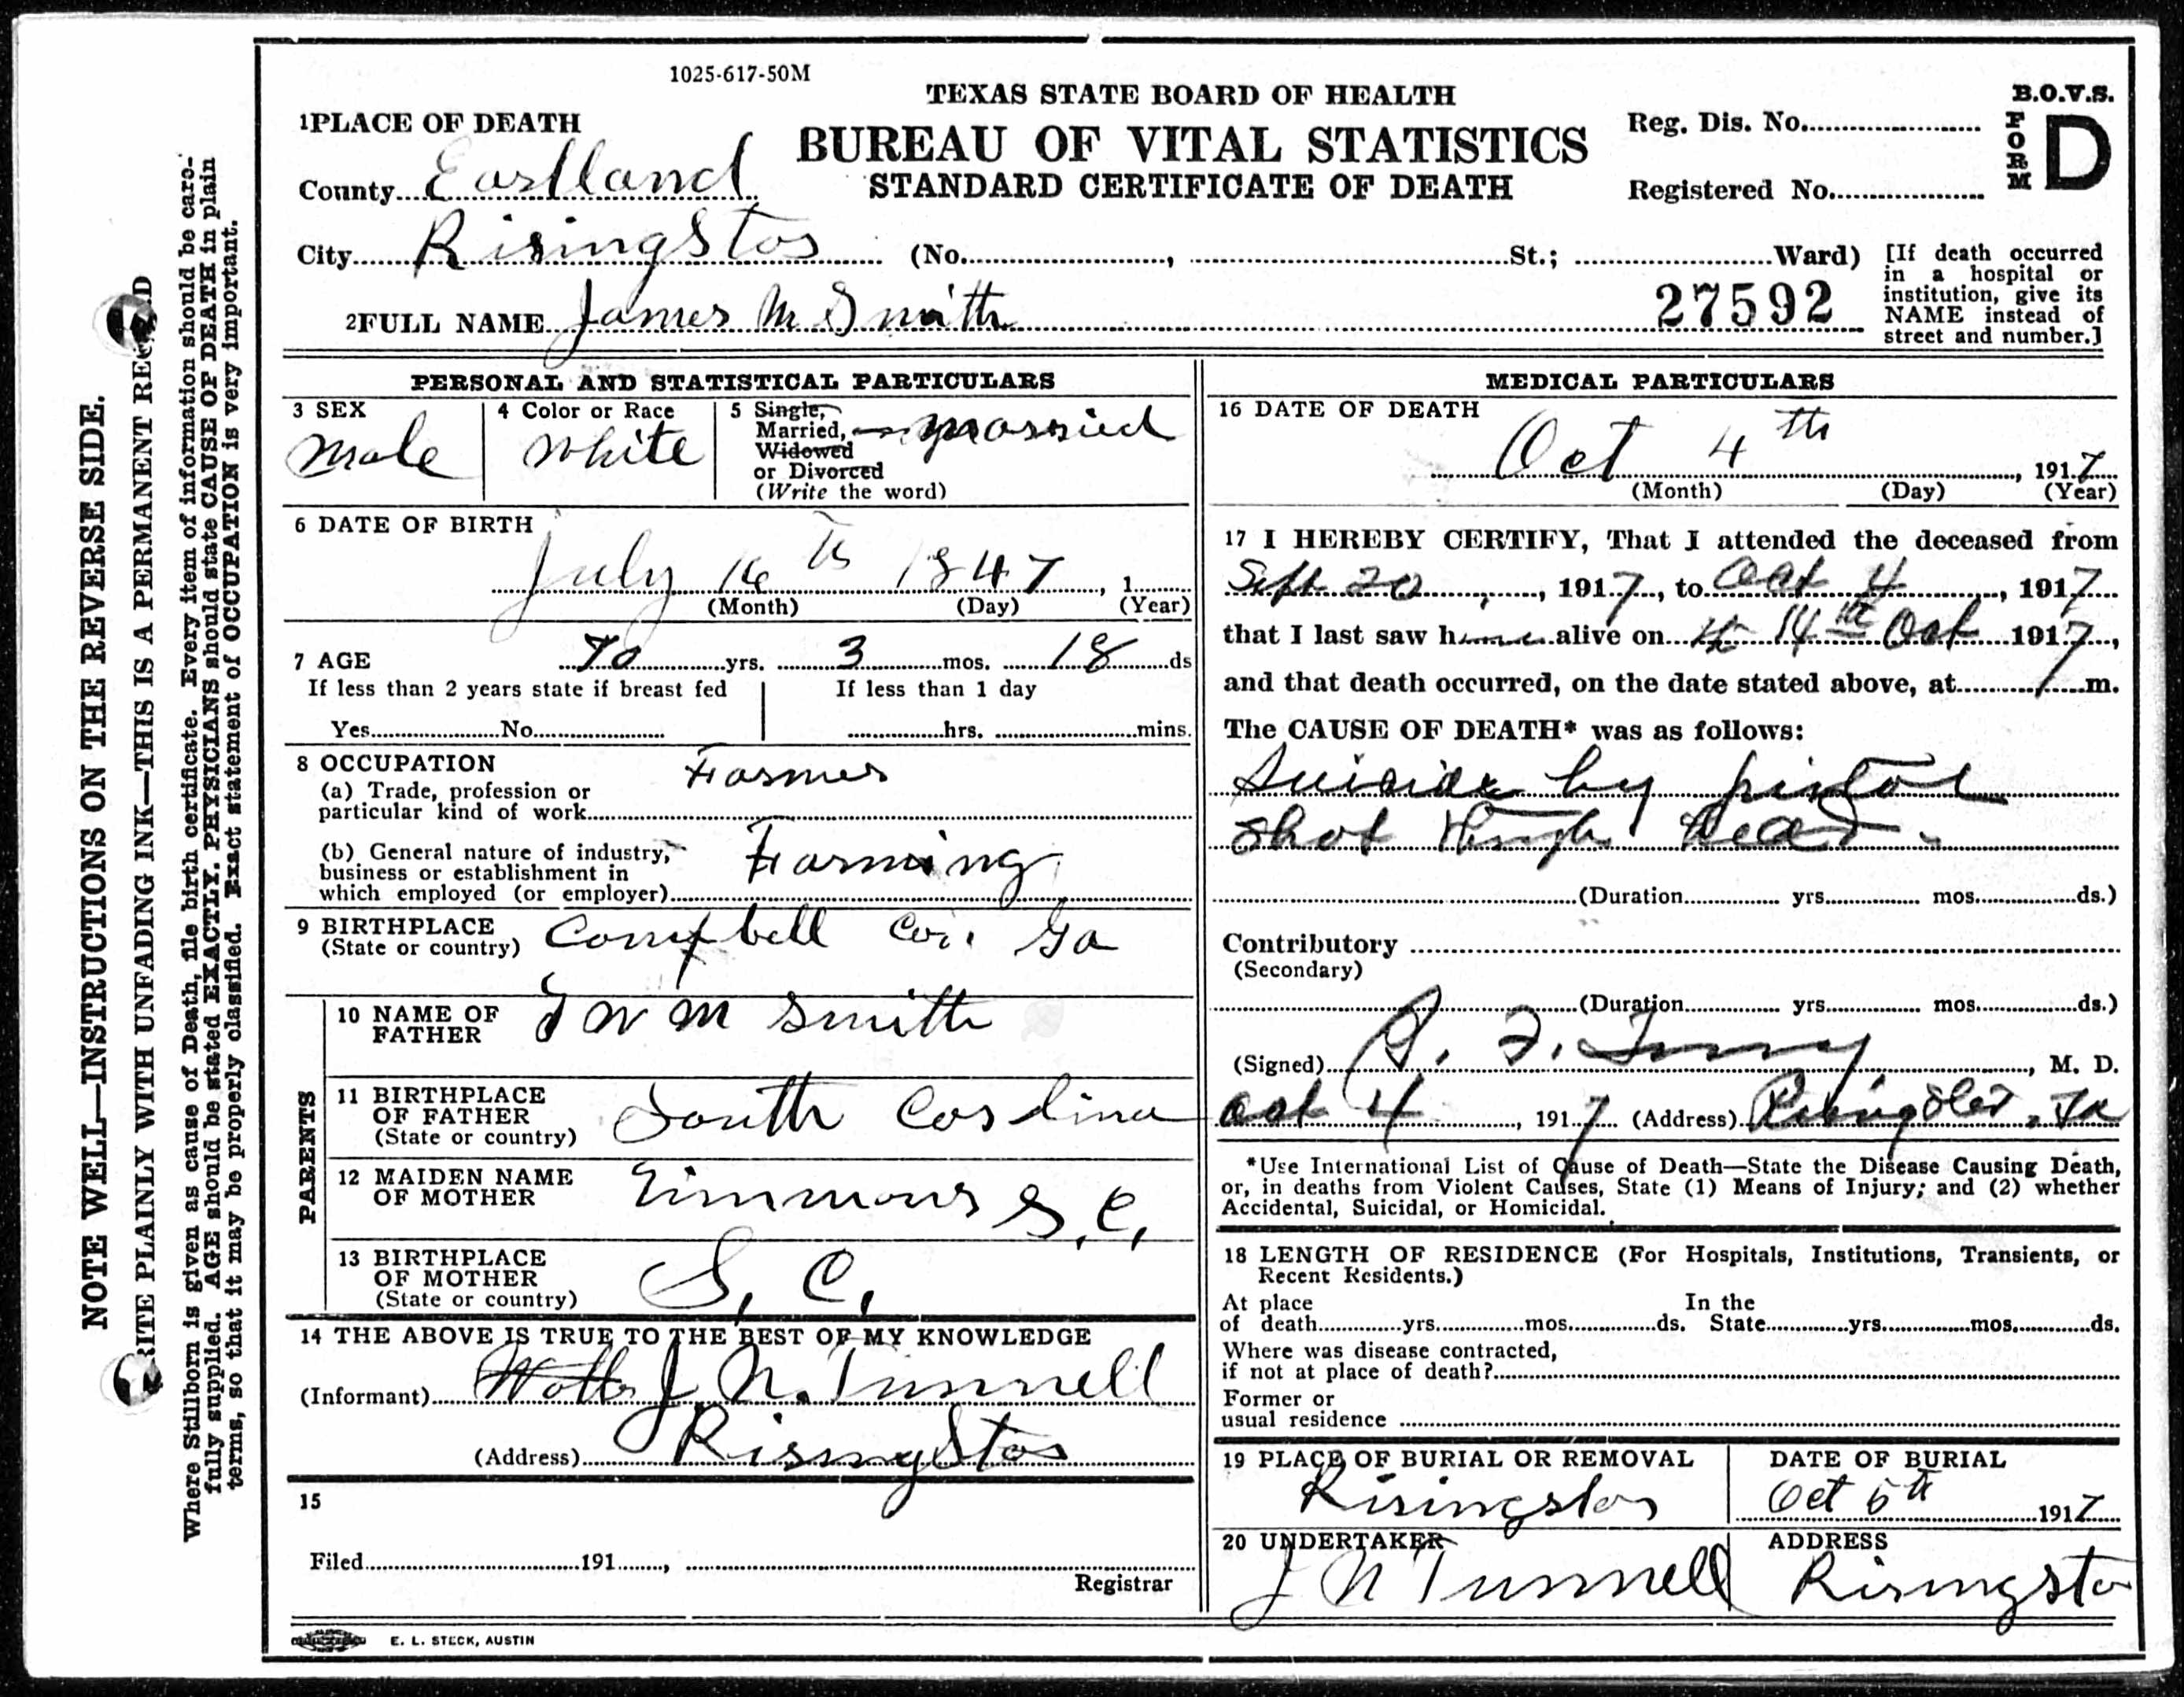 1025-617-50M
TEXAS STATE BOARD OF HEALTH
BUREAU OF VITAL STATISTICS
STANDARD CERTIFICATE OF DEATH
B.O.V.S.
FORM D
Reg. Dis. No.
Registered No.
1 PLACE OF DEATH
County Eastland
City RisingStar (No. , St.; Ward)
[If death occurred
in a hospital or
institution, give its
NAME instead of
street and number.]
2 FULL NAME James M Smith
27592
PERSONAL AND STATISTICAL PARTICULARS
3 SEX
Male
4 Color or Race
White
5 Single,
Married,
Widowed
or Divorced
(Write the word)
married
6 DATE OF BIRTH
July 16 th 1847, 1
(Month) (Day) (Year)
7 AGE 70 yrs. 3 mos. 18 ds
If less than 2 years state if breast fed
Yes No
If less than 1 day
hrs. mins.
8 OCCUPATION
(a) Trade, profession or
particular kind of work
Farmer
(b) General nature of industry,
business or establishment in
which employed (or employer)
Farming
9 BIRTHPLACE
(State or country)
Campbell Co. Ga
PARENTS
10 NAME OF
FATHER
W M Smith
11 BIRTHPLACE
OF FATHER
(State or country)
South Carolina
12 MAIDEN NAME
OF MOTHER
Simmons S.C.
13 BIRTHPLACE
OF MOTHER
(State or country)
S. C.
14 THE ABOVE IS TRUE TO THE BEST OF MY KNOWLEDGE
(Informant) J. N. Tunnell
(Address) RisingStar
15
Filed 191 ,
Registrar
E. L. STECK, AUSTIN
MEDICAL PARTICULARS
16 DATE OF DEATH
Oct 4 th, 1917
(Month) (Day) (Year)
17 I HEREBY CERTIFY, That I attended the deceased from
Sept 20, 1917, to Oct 4, 1917
that I last saw him alive on 4th Oct 1917,
and that death occurred, on the date stated above, at m.
The CAUSE OF DEATH* was as follows:
Suicide by pistol
shot through head.
(Duration yrs. mos. ds.)
Contributory
(Secondary)
(Duration yrs. mos. ds.)
(Signed) , M. D.
Oct 4, 1917 (Address) Rising Star, Tx
*Use International List of Cause of Death—State the Disease Causing Death,
or, in deaths from Violent Causes, State (1) Means of Injury; and (2) whether
Accidental, Suicidal, or Homicidal.
18 LENGTH OF RESIDENCE (For Hospitals, Institutions, Transients, or
Recent Residents.)
At place
of death yrs. mos. ds.
In the
State yrs. mos. ds.
Where was disease contracted,
if not at place of death?
Former or
usual residence
19 PLACE OF BURIAL OR REMOVAL
Risingstar
DATE OF BURIAL
Oct 5th 1917
20 UNDERTAKER
J N Tunnell
ADDRESS
Risingsta
NOTE WELL—INSTRUCTIONS ON THE REVERSE SIDE.
RITE PLAINLY WITH UNFADING INK—THIS IS A PERMANENT RECORD
Where Stillborn is given as cause of Death, file birth certificate. Every item of information should be care-
fully supplied. AGE should be stated EXACTLY. PHYSICIANS should state CAUSE OF DEATH in plain
terms, so that it may be properly classified. Exact statement of OCCUPATION is very important.